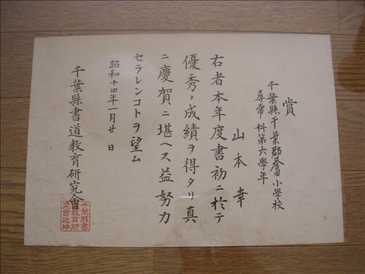 賞
千葉縣千葉郡誉田小學校
尋常科第六學年
山本幸
右者本年度書初ニ於テ
優秀ノ成績ヲ得タリ真
ニ慶賀ニ堪ヘス益努力
セラレンコトヲ望ム
昭和十四年一月廿日
千葉縣書道教育研究會